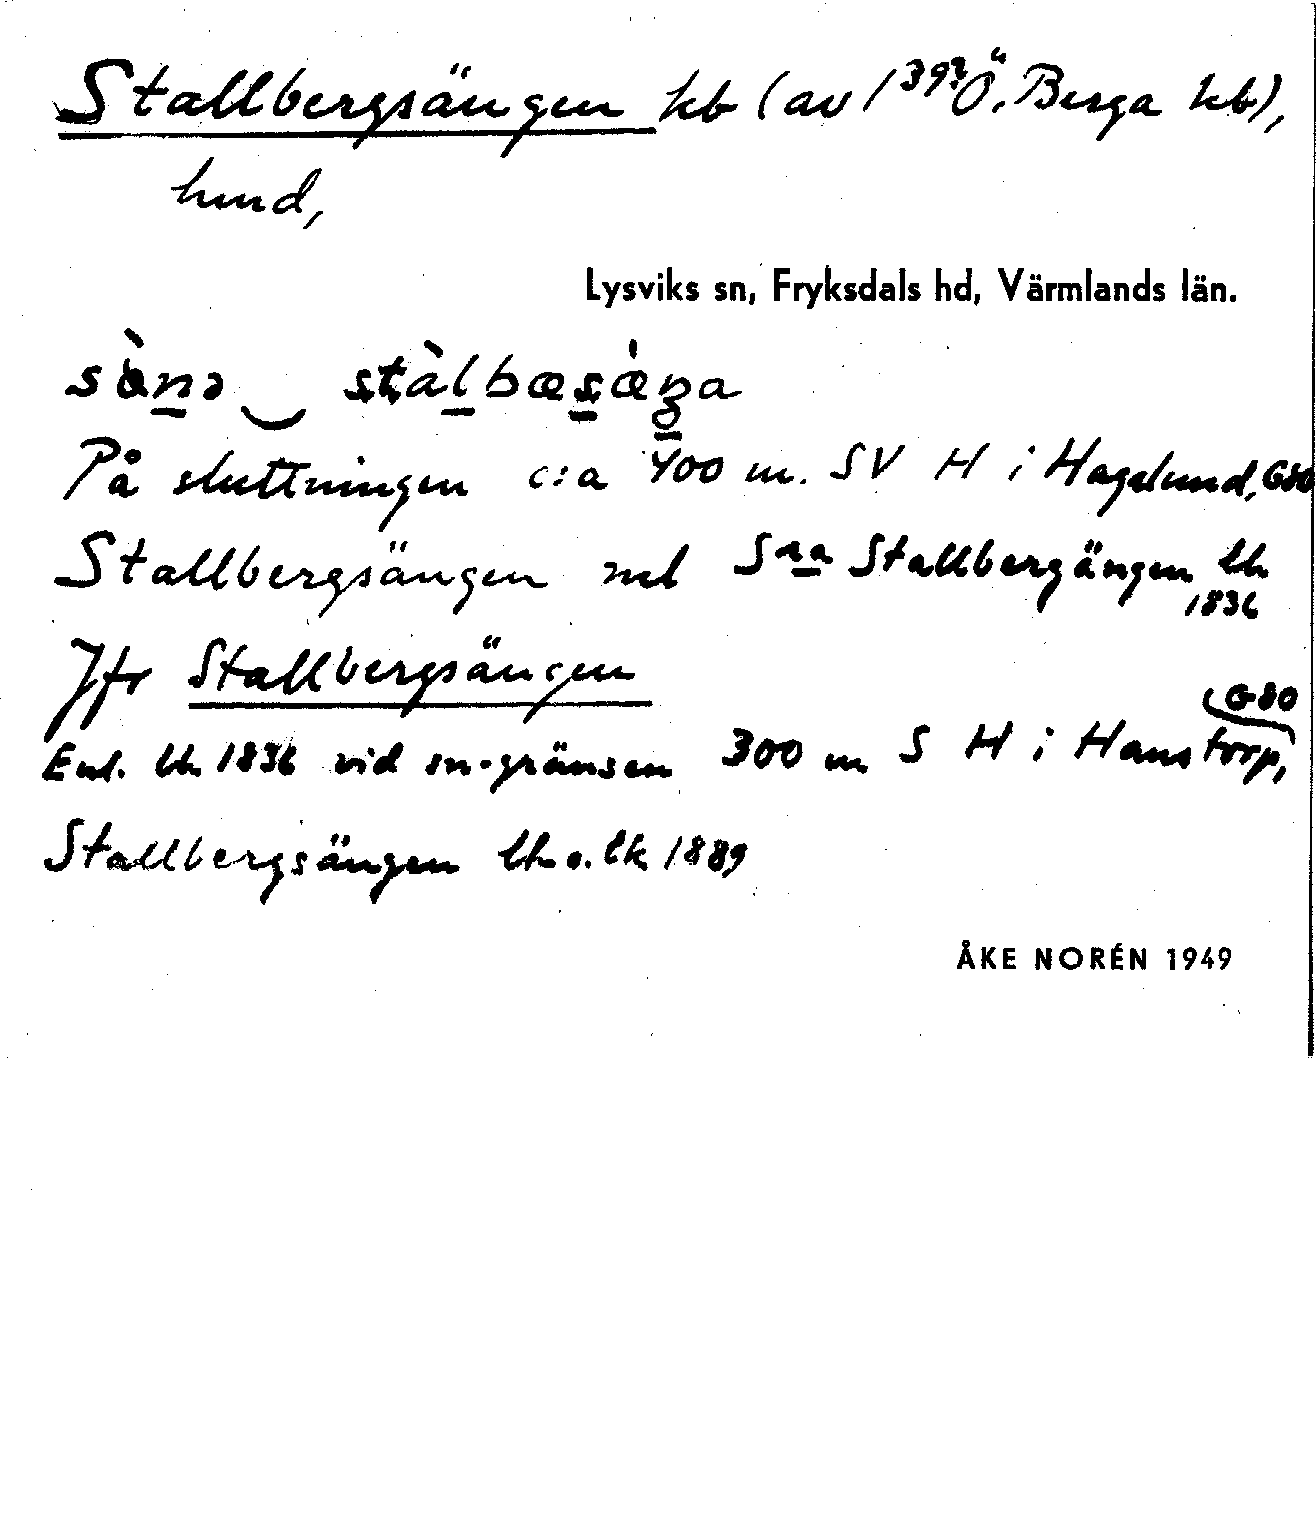 Stallbergsängen hb (av 1³⁹² Ö. Berga hb),
hmd,
Lysviks sn, Fryksdals hd, Värmlands län.
På sluttningen c:a 400 m. SV H i Hagelund, G80
Stallbergsängen md Sra Stallbergängen lh
1836
Jfr Stallbergsängen
Enl. lh 1836 vid sn-gränsen 300 m S H i Hanstorp, G80
Stallbergsängen lh o. lk 1889
ÅKE NORÉN 1949